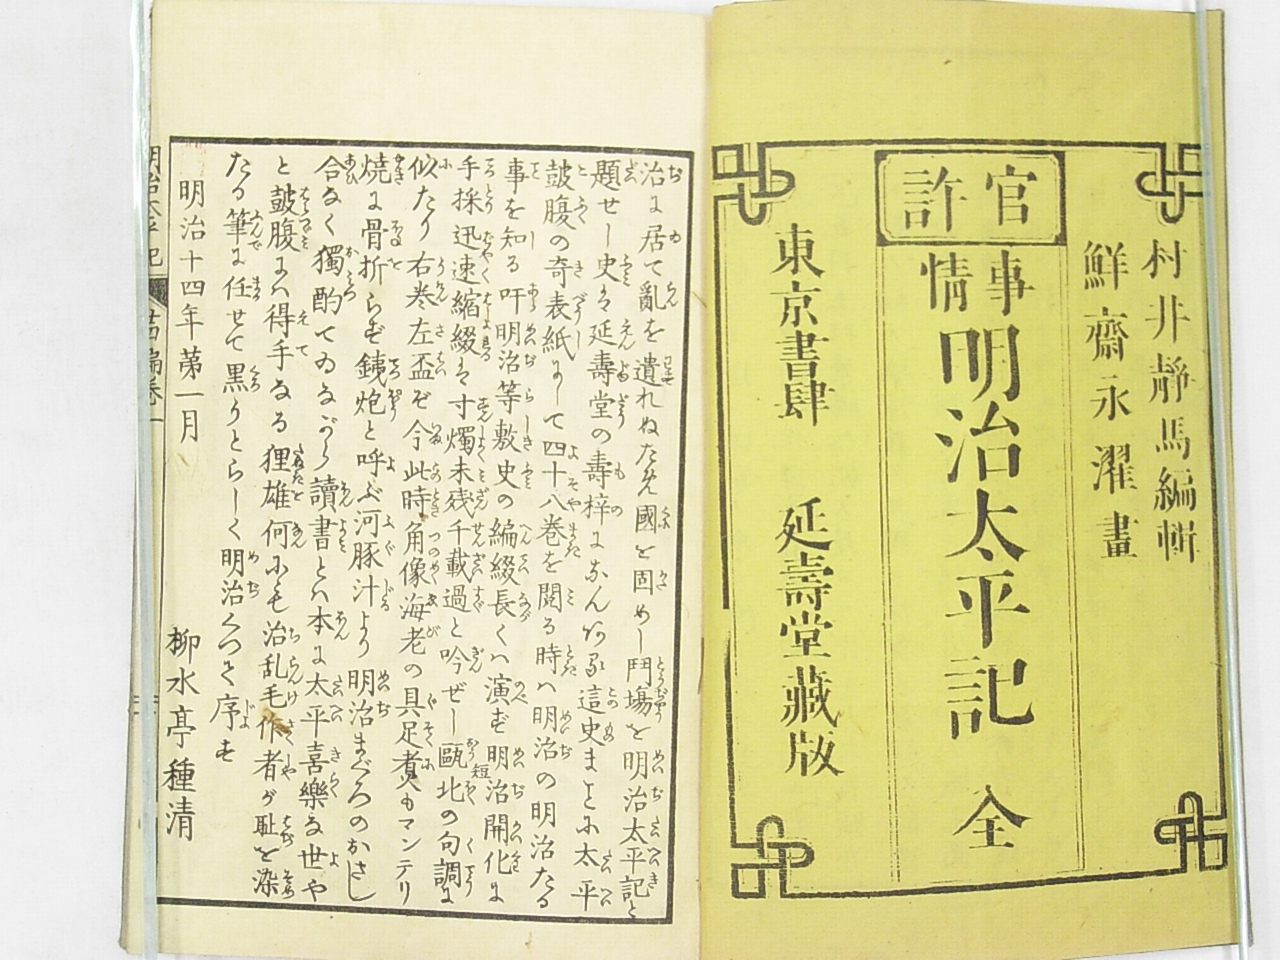 官許
村井靜馬編輯
鮮齋永濯畫
事情
明治太平記 全
東京書肆 延壽堂藏版
治に居て亂を遺れぬため國を固めし鬥場を明治太平記と
題せし史は延壽堂の壽梓になん
這史まことに太平
皷腹の奇表紙にして四十八巻を閲る時ハ明治の明治たる
事を知る
明治等敷史の編綴長くハ演ず明治開化に
手採迅速縮綴は寸燭未残千載過と吟ぜし甌北の句調に
似たり右巻左盃ぞ今此時角像海老の具足煑もマンテリ
燒に骨折らず銕炮と呼ぶ河豚汁より明治まぐろのかさし
合なく獨酌てゐながら讀書とハ本に太平喜樂な世や
と皷腹にハ得手なる狸雄何にも治乱毛作者が耻を染
たる筆に任せて黒
明治
序す
明治十四年第一月
柳水亭種清